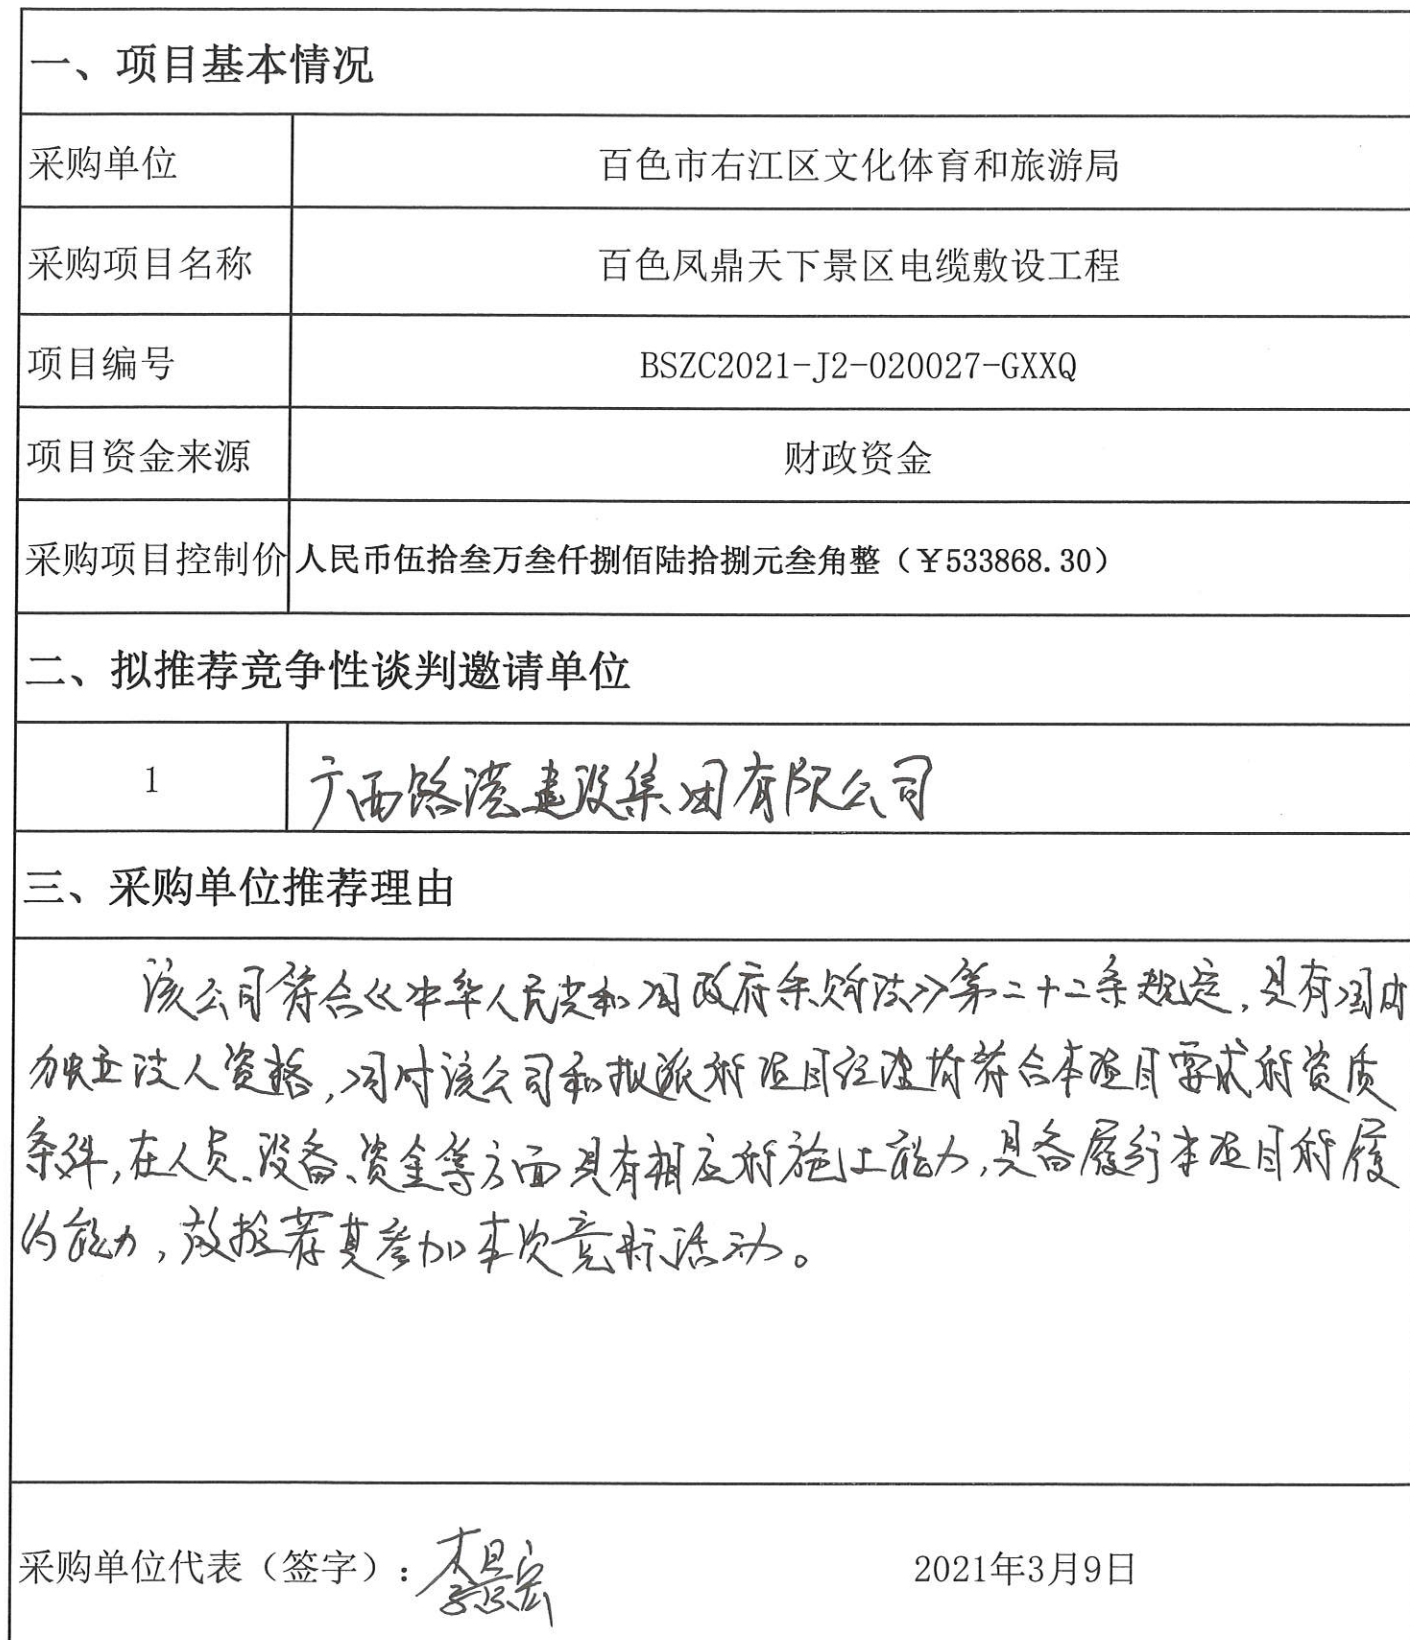 一、项目基本情况
采购单位 百色市右江区文化体育和旅游局
采购项目名称 百色凤鼎天下景区电缆敷设工程
项目编号 BSZC2021-J2-020027-GXXQ
项目资金来源 财政资金
采购项目控制价 人民币伍拾叁万叁仟捌佰陆拾捌元叁角整（¥533868.30）
二、拟推荐竞争性谈判邀请单位
1 广西路港建设集团有限公司
三、采购单位推荐理由
该公司符合《中华人民共和国政府采购法》第二十二条规定,具有国内
独立法人资格,同时该公司和拟派的项目经理均符合本项目要求的资质
条件,在人员、设备、资金等方面具有相应的施工能力,具备履行本项目的履
约能力,故推荐其参加本次竞标活动。
采购单位代表（签字）: 2021年3月9日